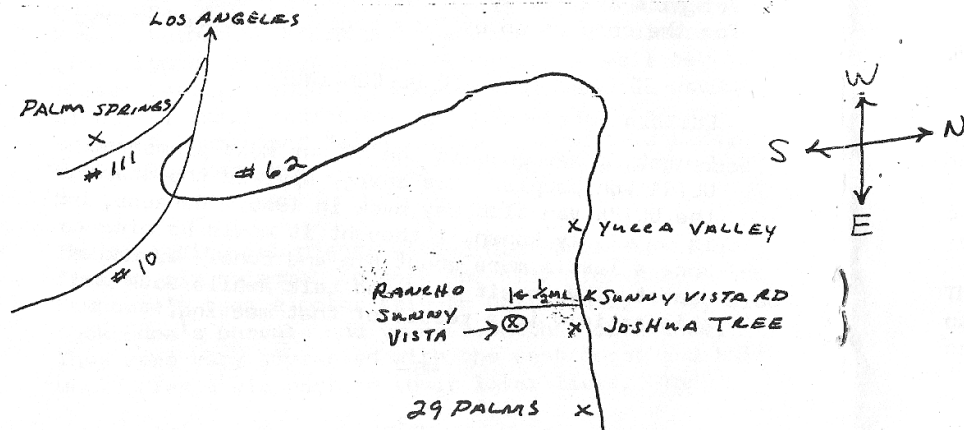 LOS ANGELES
W
PALM SPRINGS
X
N
S
# 111
# 62
E
X YUCCA VALLEY
# 10
RANCHO
SUNNY
VISTA
½ MI.
SUNNY VISTA RD
X
X JOSHUA TREE
29 PALMS X